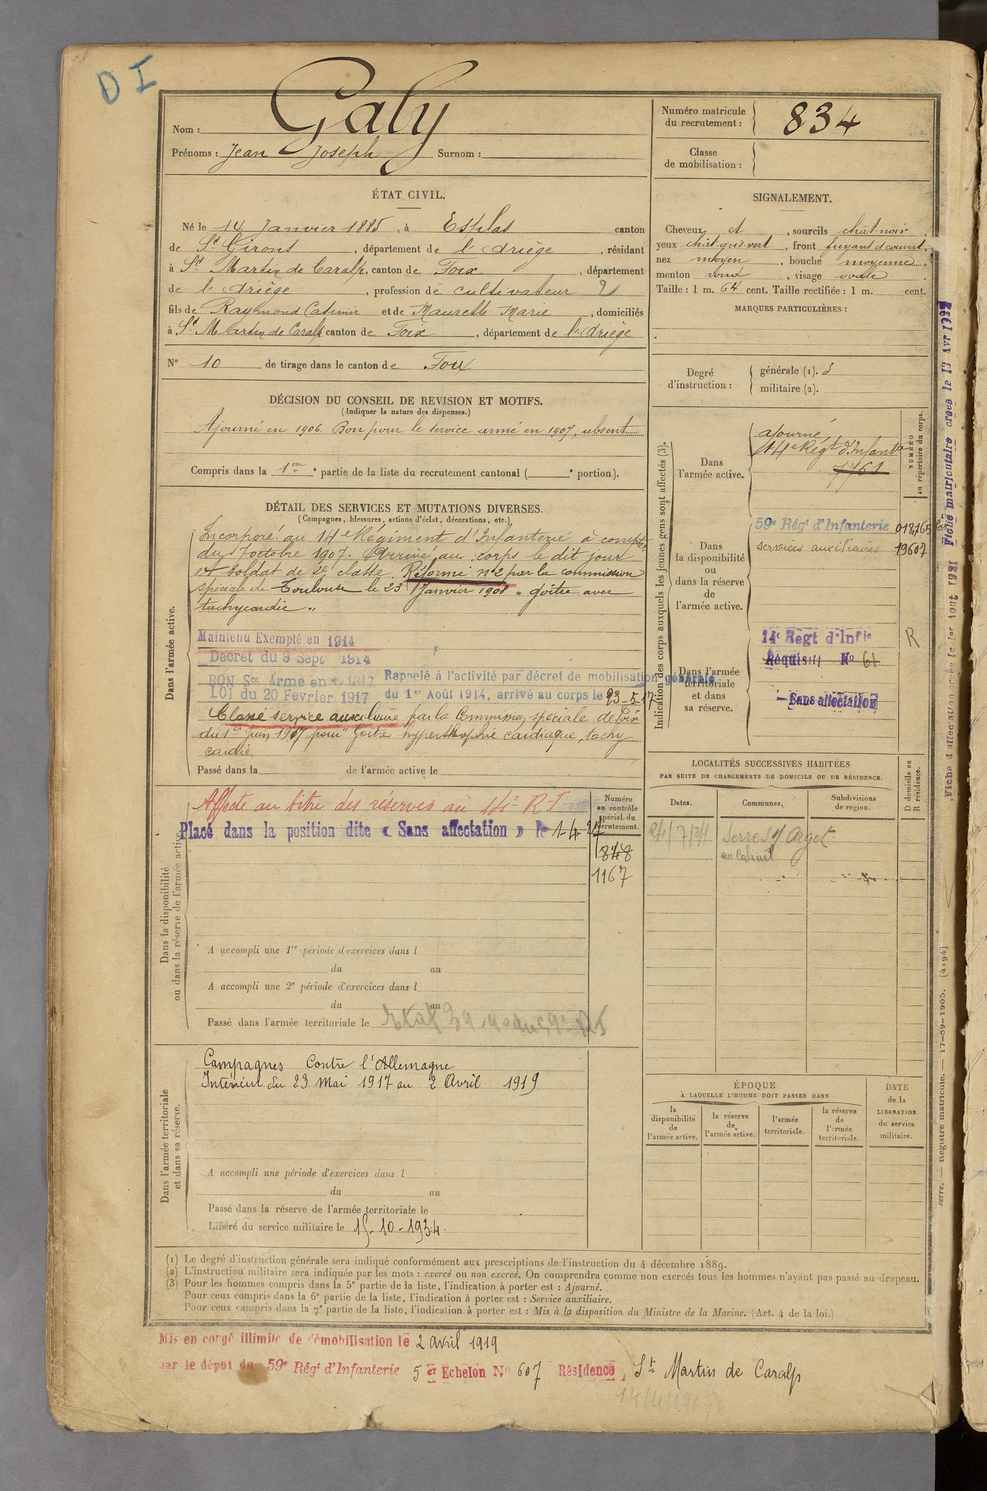 D I
Nom : Galy
Prénoms : Jean Joseph Surnom :
Numéro matricule du recrutement : 834
Classe de mobilisation :
ÉTAT CIVIL.
Né le 14 Janvier 1885, à Esplas canton
de St Girons, département de l'Ariège, résidant
à St Martin de Caralp, canton de Foix, département
de l'Ariège, profession de cultivateur
fils de Raymond Casimir et de Maurette Marie, domiciliés
à St Martin de Caralp canton de Foix, département de l'Ariège
N° 10 de tirage dans le canton de Foix
SIGNALEMENT.
Cheveux et, sourcils chât noir,
yeux chât gris vert, front fuyant découvert,
nez moyen, bouche moyenne,
menton rond, visage ovale
Taille : 1 m. 64 cent. Taille rectifiée : 1 m. cent.
MARQUES PARTICULIÈRES :
Degré d'instruction : générale (1). 3
militaire (2).
DÉCISION DU CONSEIL DE REVISION ET MOTIFS.
(Indiquer la nature des dispenses.)
Ajourné en 1906. Bon pour le service armé en 1907, absent
Compris dans la 1ère partie de la liste du recrutement cantonal ( e portion).
DÉTAIL DES SERVICES ET MUTATIONS DIVERSES.
(Campagnes, blessures, actions d'éclat, décorations, etc.)
Dans l'armée active.
Incorporé au 14e Régiment d'Infanterie à compter
du 7 octobre 1907. Arrivé au corps le dit jour
et soldat de 2e classe. Réformé n° 2 par la commission
spéciale de Toulouse le 23 Janvier 1908 "goître avec
tachycardie".
Maintenu Exempté en 1914
Décret du 9 Sept 1914
BON Sce Armé en 1917
LOI du 20 Février 1917
Rappelé à l'activité par décret de mobilisation générale
du 1er Août 1914, arrivé au corps le 23-5-17
Classé service auxiliaire par la Commission spéciale de Foix
du 1er juin 1917 pour "Goître hypertrophie cardiaque, tachy
cardie
Passé dans la de l'armée active le
Indication des corps auxquels les jeunes gens sont affectés (3).
NUMÉRO au répertoire du corps.
Dans l'armée active.
ajourné
14e Régt d'Infanterie
1761
Dans la disponibilité ou dans la réserve de l'armée active.
59e Régt d'Infanterie 018165
services auxiliaires 19607
Dans l'armée territoriale et dans sa réserve.
14e Regt d'Infie R
Requis N° 61
Sans affectation
Fiche matriculaire créée le 13 Avr 1932
LOCALITÉS SUCCESSIVES HABITÉES
PAR SUITE DE CHANGEMENTS DE DOMICILE OU DE RÉSIDENCE.
Dates. Communes. Subdivisions de région. D domicile ou R résidence.
24/7/21 Serres s/ Arget
Dans la disponibilité ou dans la réserve de l'armée active.
Affecté au titre des réserves au 14e R I
Placé dans la position dite « Sans affectation » le 1-4-2
Numéro au contrôle spécial du recrutement.
1848
1167
A accompli une 1re période d'exercices dans l
du au
A accompli une 2e période d'exercices dans l
du au
Passé dans l'armée territoriale le
Dans l'armée territoriale et dans sa réserve.
Campagnes Contre l'Allemagne
Intérieur du 23 Mai 1917 au 2 Avril 1919
A accompli une période d'exercices dans l
du au
Passé dans la réserve de l'armée territoriale le
Libéré du service militaire le 15-10-1934
ÉPOQUE
À LAQUELLE L'HOMME DOIT PASSER DANS
la disponibilité de l'armée active.
la réserve de l'armée active.
l'armée territoriale.
la réserve de l'armée territoriale.
DATE de la LIBÉRATION du service militaire.
(1) Le degré d'instruction générale sera indiqué conformément aux prescriptions de l'instruction du 4 décembre 1889.
(2) L'instruction militaire sera indiquée par les mots : exercé ou non exercé. On comprendra comme non exercés tous les hommes n'ayant pas passé au drapeau.
(3) Pour les hommes compris dans la 5e partie de la liste, l'indication à porter est : Ajourné.
Pour ceux compris dans la 6e partie de la liste, l'indication à porter est : Service auxiliaire.
Pour ceux compris dans la 7e partie de la liste, l'indication à porter est : Mis à la disposition du Ministre de la Marine. (Art. 4 de la loi.)
Mis en congé illimité de démobilisation le 2 avril 1919
par le dépôt du 59e Régt d'Infanterie 5 er Echelon N° 607 Résidence, St Martin de Caralp